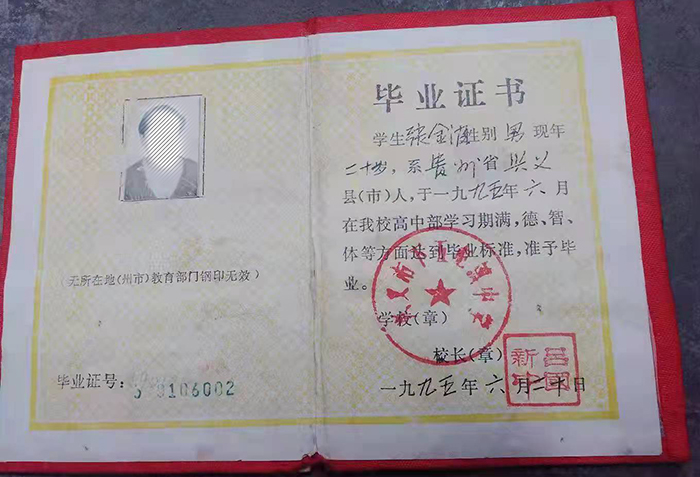 (无所在地(州市)教育部门钢印无效)
毕业证号:
9106002
毕业证书
学生张金 性别男现年
二十岁,系贵州省兴义
县(市)人,于一九九五年六月
在我校高中部学习期满,德、智、
体等方面达到毕业标准,准予毕
业。
学校(章)
校长(章)
一九九五年六月二十日